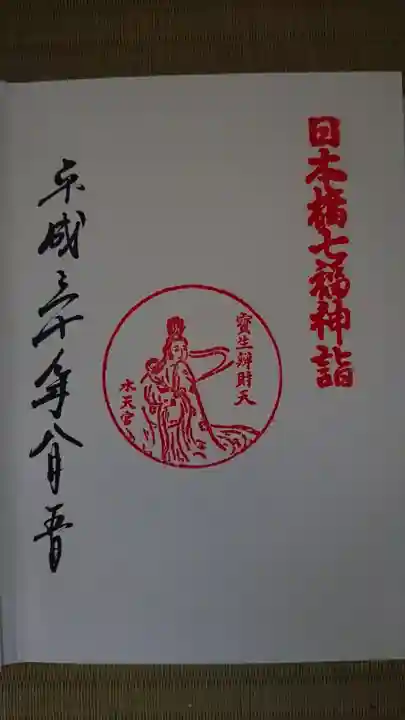 日本橋七福神詣
寳生辨財天
水天宮
平成三十年八月五日